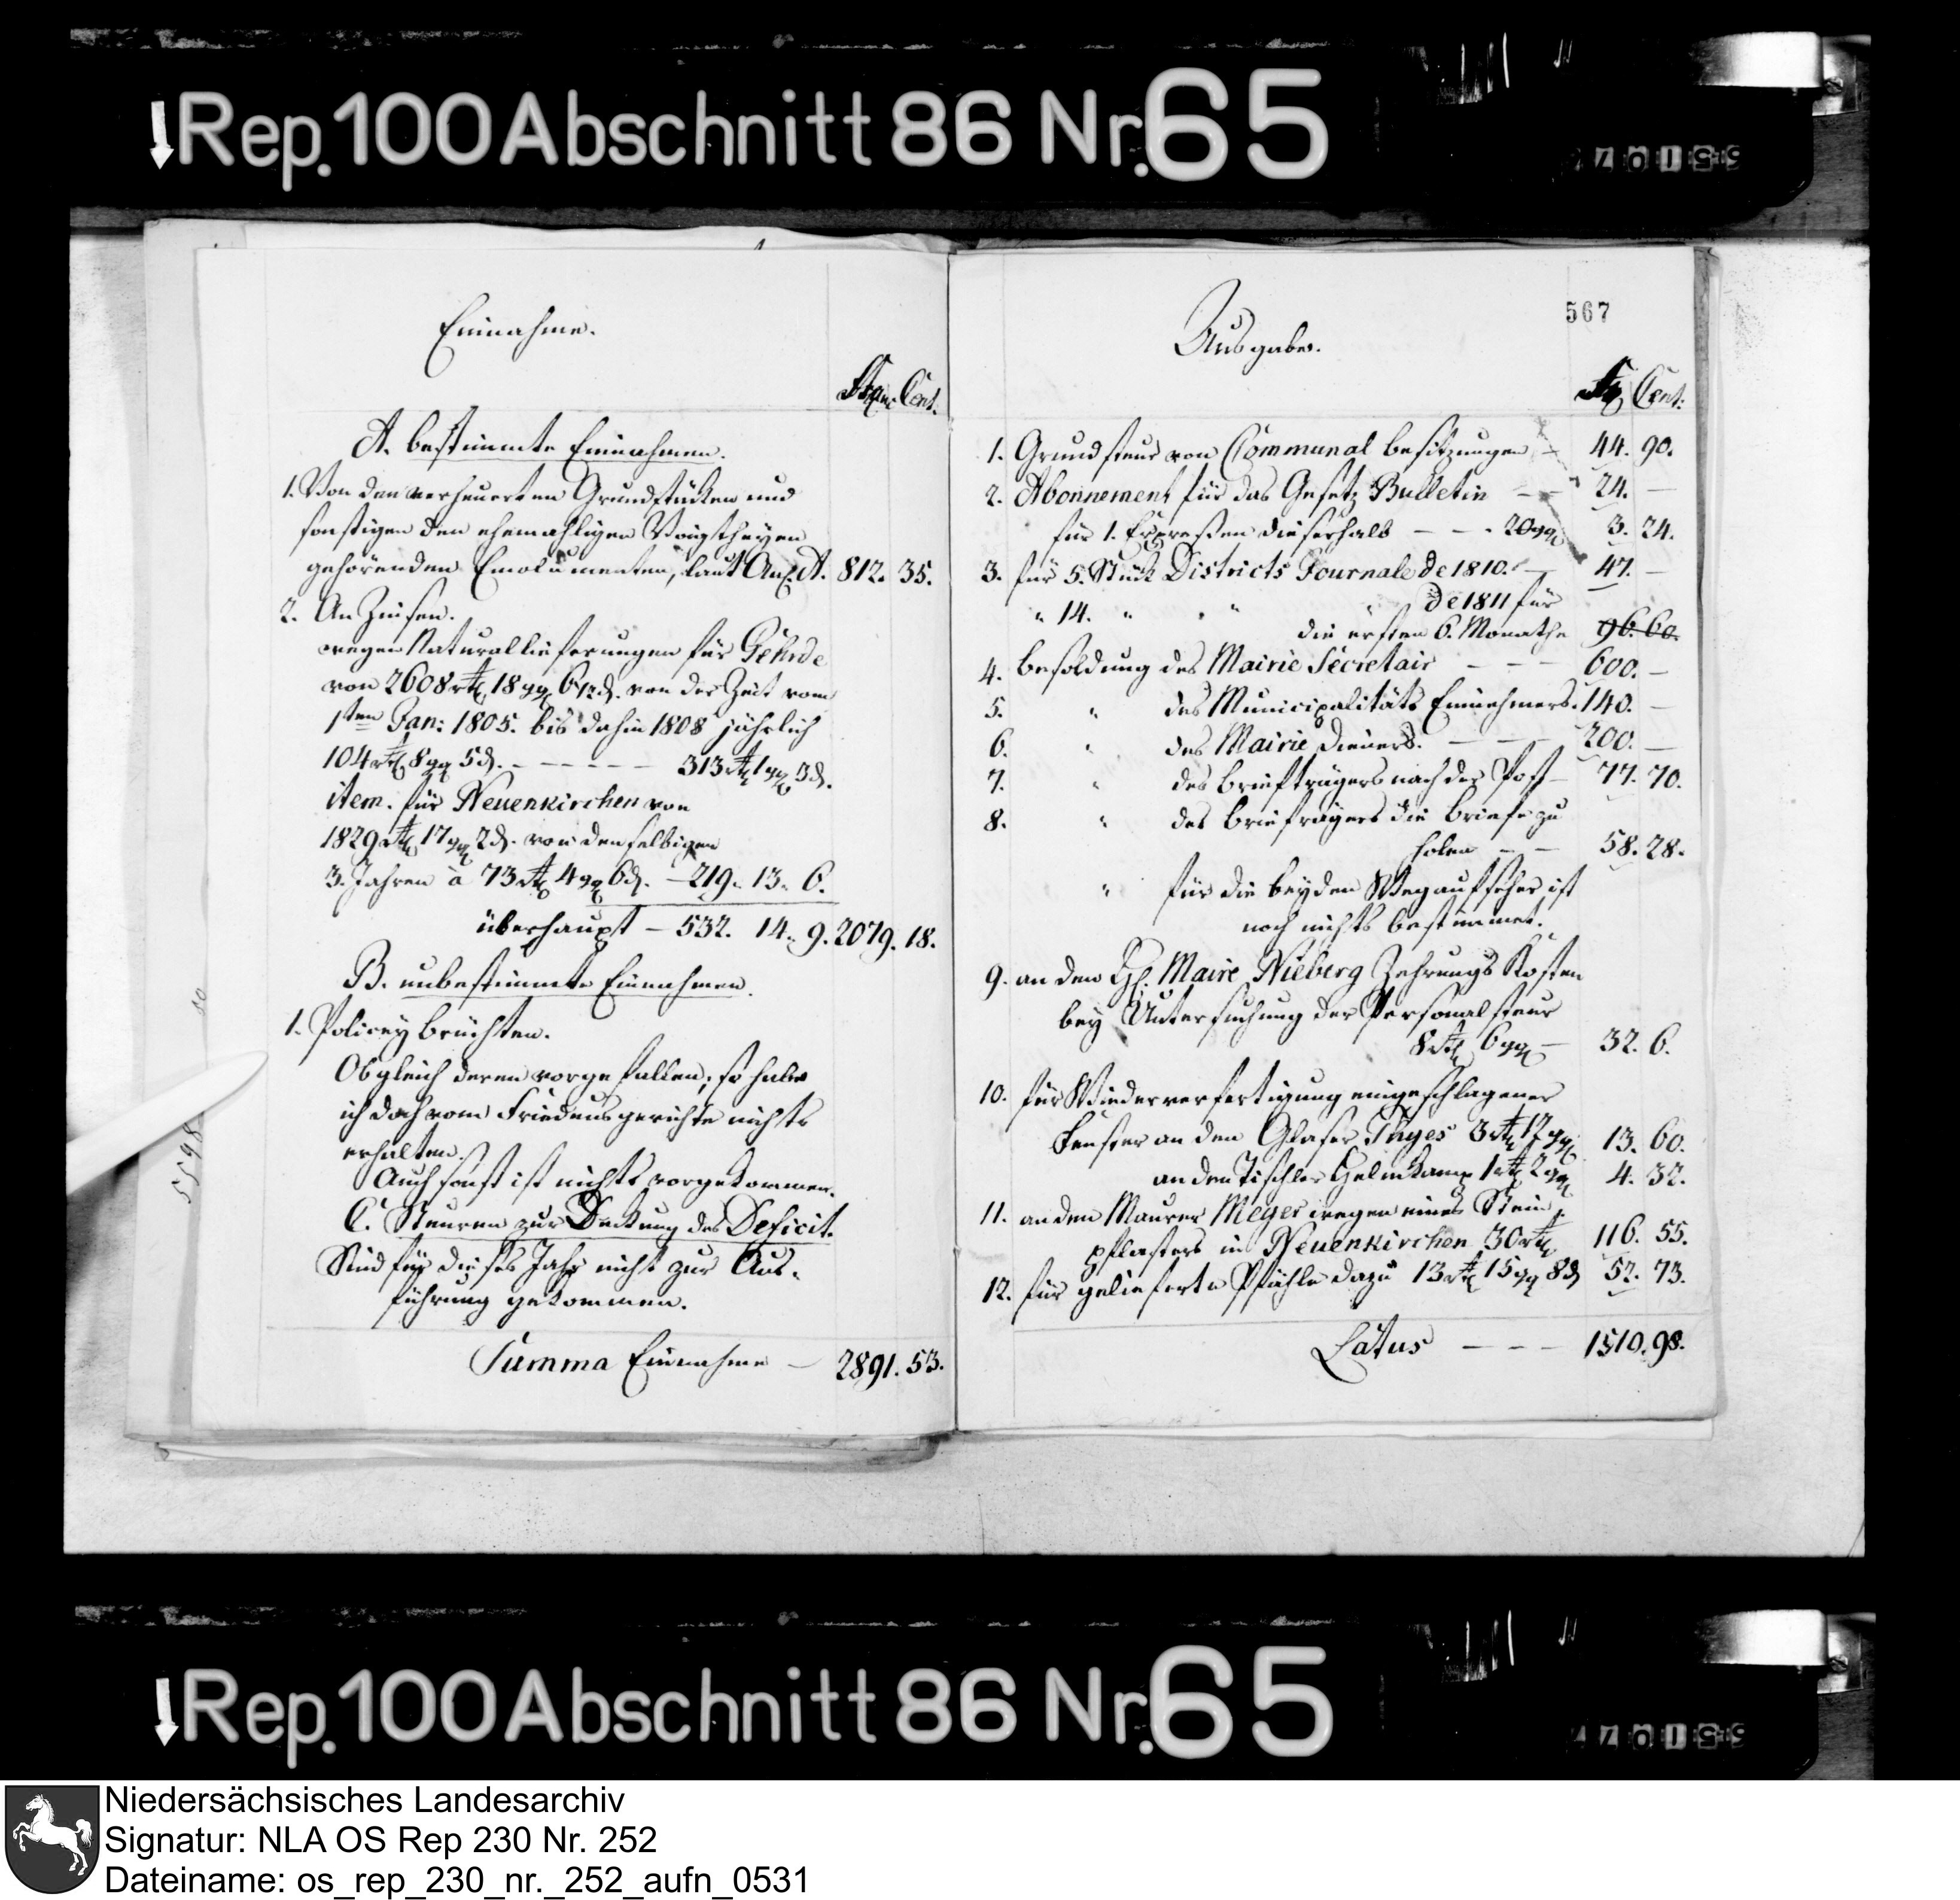 Rep. 100 Abschnitt 86 Nr. 65
Einnahme.
Cent.
A. bestimmte Einnahmen.
1. Von den verheuerten Grundstücken und
sonstigen den ehemahligen Voigtheyen
gehörenden Emolumenten, laut Anl. A. 812. 35.
2. An Zinsen.
wegen Naturallieferungen für Gehrde
von 2608 rt 18 ggr 6 1/2 d. von der Zeit vom
1ten Jan: 1805. bis dahin 1808 jährlich
104 rt 8 ggr 5 d. - - - - - 313 rt 1 ggr 3 d.
item. für Neuenkirchen von
1829 rt 17 ggr 2 d. von denselbigen
3. Jahren à 73 rt 4 ggr 6 d. - 219. 13. 6.
überhaupt - 532. 14. 9. 2079. 18.
B. unbestimmte Einnahmen.
1. Policey brüchten.
Obgleich deren vorgefallen, so habe
ich doch vom Friedensgerichte nichts
erhalten.
Auch sonst ist nichts vorgekommen.
C. Steuren zur Deckung des Deficit.
Sind für dieses Jahr nicht zur Aus-
führung gekommen.
Summa Einnahme - 2891. 53.
567
Ausgabe.
Cent:
1. Grundsteur von Communal besitzungen - 44. 90.
2. Abonnement für das Gesetz Bulletin - - 24. -
für 1. Expreßen dieserhalb - - - 20 ggr 3. 24.
3. für 5. Stück Districts Journale de 1810. - 47. -
" 14. " " " de 1811 für
die ersten 6. Monathe 96. 60.
4. besoldung des Mairie Sécretair - - - 600. -
5. " des Municipalitäts Einnehmers. 140. -
6. " des Mairie Dieners. - - - 200. -
7. " des briefträgers nach der Post - 77. 70.
8. " des briefträgers die briefe zu
holen - - 58. 28.
" für die beyden Wegaufseher ist
noch nichts bestimmet.
9. an den H. Maire Nieberg Zehrungs Kosten
bey Untersuchung der Personalsteur
8 rt 6 ggr - 32. 6.
10. für Wiederverfertigung eingeschlagener
Fenster an den Glaser Thyes 3 rt 12 ggr 13. 60.
an den Tischler Helmkamp 1 rt 2 ggr 4. 32.
11. an den Maurer Meyer wegen eines Stein-
pflasters in Neuenkirchen 30 rt 116. 55.
12. für gelieferte Pfähle dazu 13 rt 15 ggr 8 d 52. 73.
Latus - - - 1510. 98.
Rep. 100 Abschnitt 86 Nr. 65
Niedersächsisches Landesarchiv
Signatur: NLA OS Rep 230 Nr. 252
Dateiname: os_rep_230_nr._252_aufn_0531